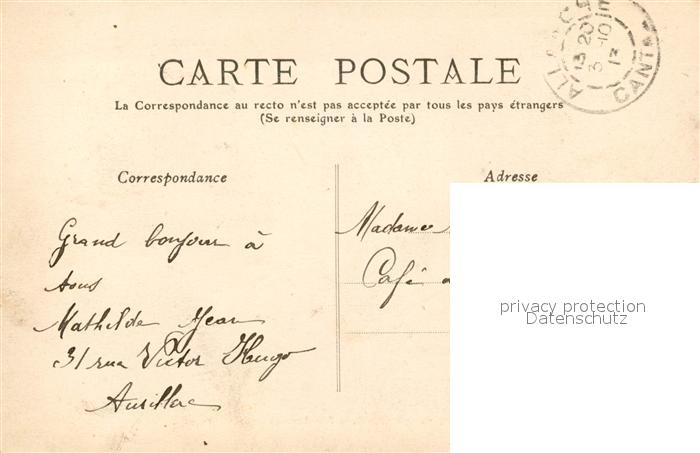 CARTE POSTALE
La Correspondance au recto n'est pas acceptée par tous les pays étrangers
(Se renseigner à la Poste)
Correspondance
Grand bonjour à
tous
Mathilde Jean
31 rue Victor Hugo
Aurillac
Adresse
Madame
Café
privacy protection
Datenschutz
13 20
3 -10
13
CANT